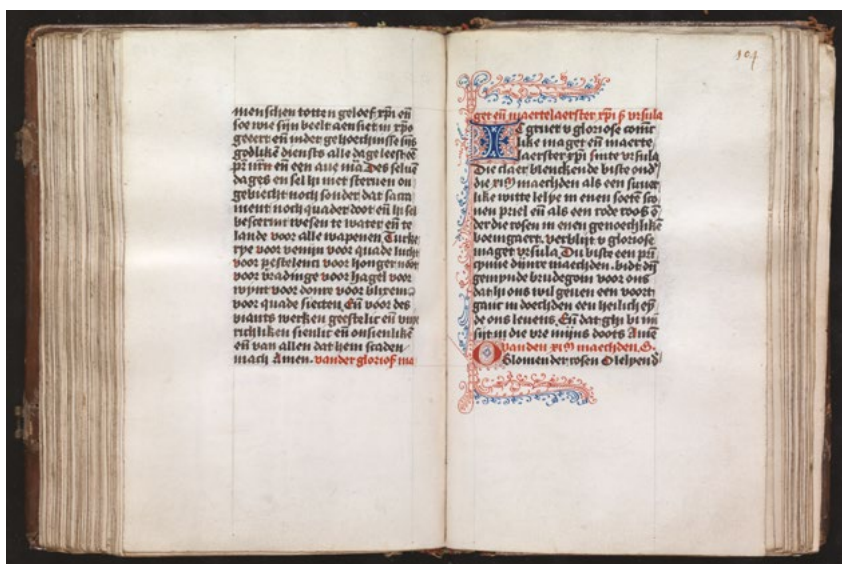 menschen totten geloef xpi eñ
soe wie sijn beelt aensiet in xps
geeert eñ inder gehoechnisse sijs
godlikē diensts alle dage leest oec
pr nr̄ eñ een aue mā. Des seluē
dages en sel hi met sternen on
gebiecht noch sonder dat sacra
ment noch quader doot eñ hi sel
bescermt wesen te water eñ te
lande voor alle wapenen Turke
rye voor venijn voor quade lucht
voor pestelenci voor hongersnoot
voor vradinge voor hagel voor
wynt voor donre voor blixem
voor quade siecten. Eñ voor des
viants werken geestelic eñ
richliken sienlic eñ onsienlikē
eñ van allen dat hem scaden
mach Amen. vander glorioſ ma
104
get eñ maertelaerster xpi s̄ vrsula
IC gruet v gloriose coninc
like maget eñ maerte
laerster xpi sinte vrsula
Die claer blenckende biste ond̄
die xi maechden als een suuer
like witte lelye in enen soetē sco
nen priel eñ als een rode roos ō
der die rosen in enen genoechlikē
boemgaert. verblijt v gloriose
maget vrsula. Du biste een prī
cynne dijnre maechden. bidt dī
gemynde brudegom voor ons
dat hi ons wil geuen een voort
ganc in doechden een heilich eȳ
de ons leuens. Eñ dat ghi bi mi
sijt in die vre mijns doots Amē
vanden xi maechden. G.
O Blomen der rosen O lelyen d̄